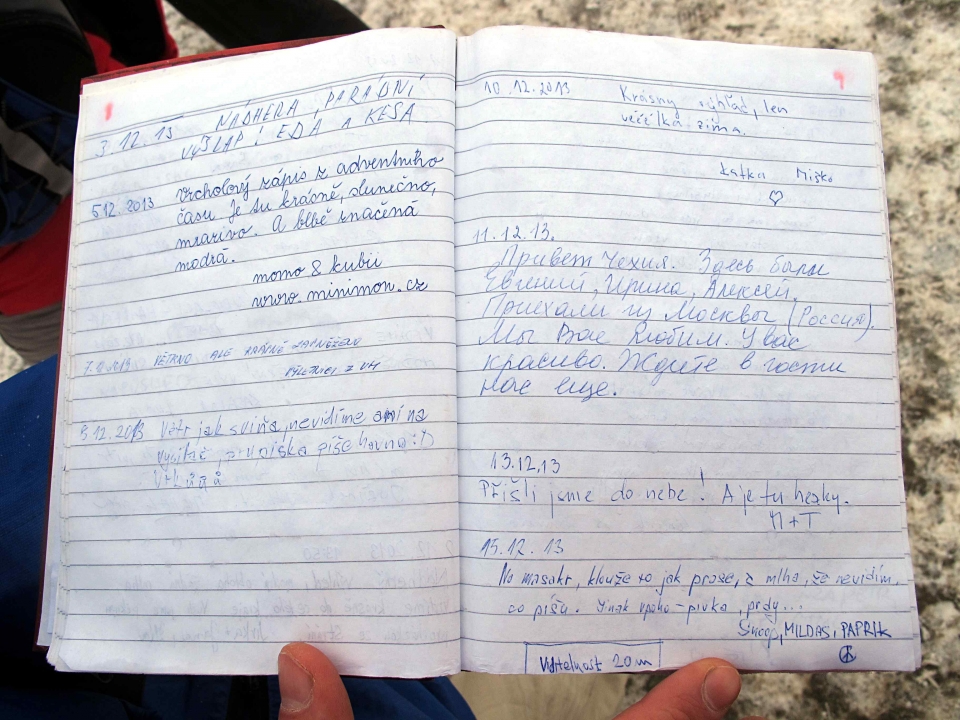 3.12.13 NÁDHERA, PARÁDNÍ
VÝŠLAP! EDA A KESA
5.12.2013 Vrcholový zápis z adventního
času. Je tu krásně, slunečno,
mrazivo. A blbě značená
modrá.
momo & kubii
www.minimon.cz
VĚTRNO ALE KRÁSNĚ ZASNĚŽENO
VÝLETNÍCI Z VM
9.12.2013 Vítr jak sviňa, nevidíme ani na
píše hovno :D
10.12.2013 Krásny výhľad, len
zima.
Katka Miško
11.12.13.
Привет Чехия. Здесь были
Евгений, Ирина, Алексей.
Приехали из Москвы (Россия).
Мы Вас Любим. У вас
красиво. Ждите в гости
нас еще.
13.12.13
Přišli jsme do nebe! A je tu hezky.
M+T
15.12.13
No masakr, klouže to jak prase, a mlha, že nevidím,
co píšu. Jinak - pivka, prdy...
Snoop, MILDAS, PAPRIK
Viditelnost 20 m